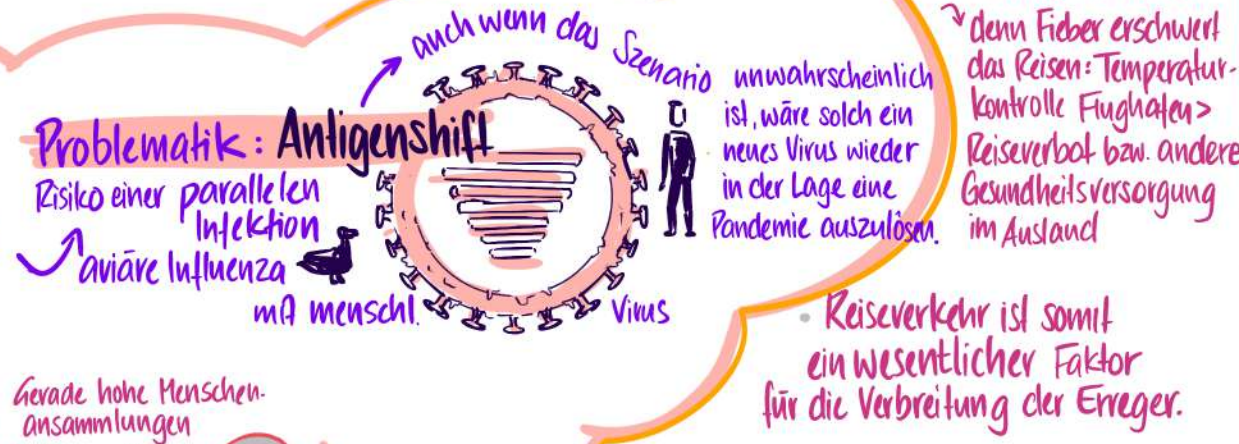 Problematik: Antigenshift
Risiko einer parallelen
Infektion
aviäre Influenza
mit menschl. Virus
auch wenn das Szenario unwahrscheinlich
ist, wäre solch ein
neues Virus wieder
in der Lage eine
Pandemie auszulösen.
denn Fieber erschwert
das Reisen: Temperatur-
kontrolle Flughafen>
Reiseverbot bzw. andere
Gesundheitsversorgung
im Ausland
Reiseverkehr ist somit
ein wesentlicher Faktor
für die Verbreitung der Erreger.
Gerade hohe Menschen-
ansammlungen